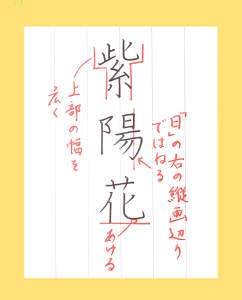 紫陽花
上部の幅を
広く
「日」の右の縦画辺り
ではねる
あける